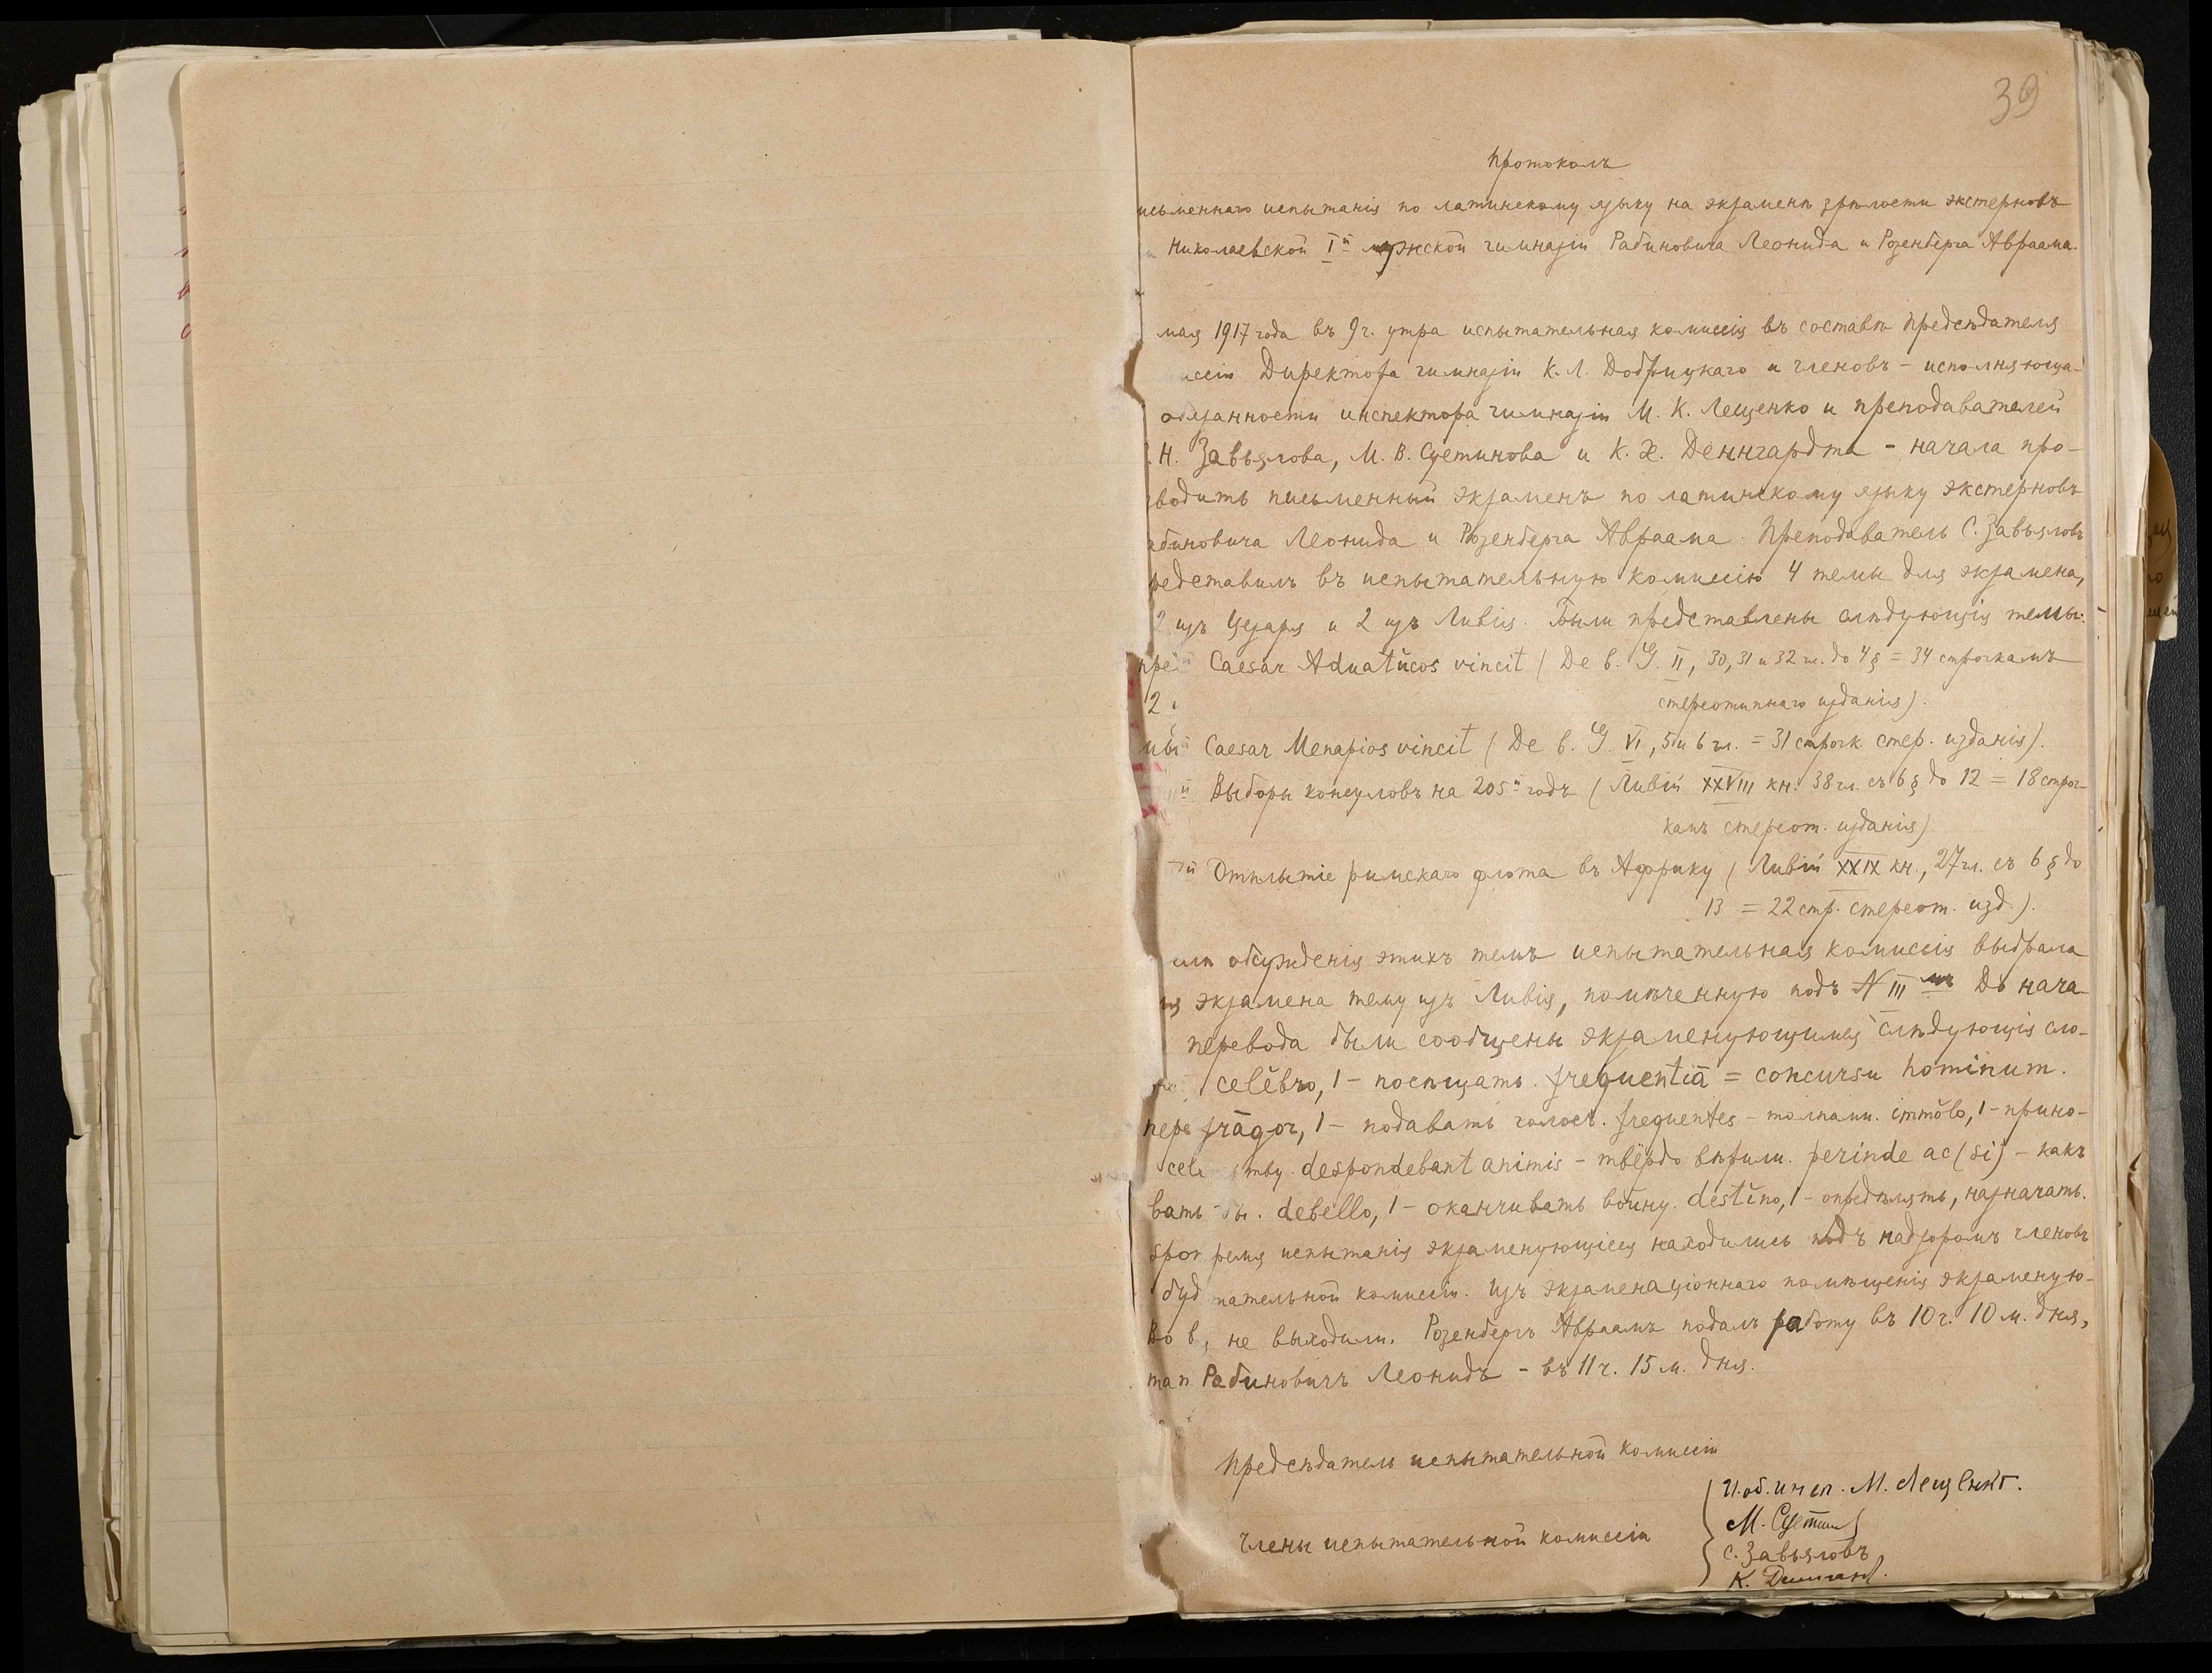 39
Протоколъ
исьменнаго испытанія по латинскому языку на экзаменѣ зрѣлости экстерновъ
Николаевской I й мужской гимназіи Рабиновича Леонида и Розенберга Авраама.
мая 1917 года въ 9 г. утра испытательная комиссія въ составѣ предсѣдателя
иссіи Директора гимназіи К. Л. Добрицкаго и членовъ - исполняюща-
обязанности инспектора гимназіи М. К. Лещенко и преподавателей
Н. Завьялова, М. В. Суетинова и К. Х. Деннгардта - начала про-
зводить письменный экзаменъ по латинскому языку экстерновъ
абиновича Леонида и Розенберга Авраама. Преподаватель С. Завьяловъ
редставилъ въ испытательную комиссію 4 темы для экзамена,
2 изъ Цезаря и 2 изъ Ливія. Были представлены слѣдующія темы:
Caesar Aduatŭcos vincit (De b. G. II, 30, 31 и 32 гл. до 4 § = 34 строчкамъ
стереотипнаго изданія).
Caesar Menapios vincit (De b. G. VI, 5 и 6 гл. = 31 строчк. стер. изданія).
й Выборы консуловъ на 205 й годъ (Ливій XXVIII кн. 38 гл. съ 6 § до 12 = 18 строч-
камъ стереот. изданія).
й Отплытіе римскаго флота въ Африку (Ливій XXIX кн., 27 гл. съ 6 § до
13 = 22 стр. стереот. изд.).
слѣ обсужденія этихъ темъ испытательная комиссія выбрала
ля экзамена тему изъ Ливія, помѣченную подъ N III мъ До нача-
перевода были сообщены экзаменующимся слѣдующія сло-
celĕbro, 1 - посѣщать. frequentiā = concursu hominum.
frāgor, 1 - подавать голосъ. frequentes - толпами. immŏlo, 1 - прино-
тву. despondebant animis - твёрдо вѣрили. perinde ac (si) - какъ
бы. debello, 1 - оканчивать войну. destĭno, 1 - опредѣлять, назначать.
ремя испытанія экзаменующіеся находились подъ надзоромъ членовъ
пательной комиссіи. Изъ экзаменаціоннаго помѣщенія экзаменую-
не выходили. Розенбергъ Авраамъ подалъ работу въ 10 г. 10 м. дня,
Рабиновичъ Леонидъ - въ 11 г. 15 м. дня.
Предсѣдатель испытательной комиссіи
Члены испытательной комиссіи
И. об. инсп. М. Лещенко.
М. Суетинов
С. Завьяловъ
К. Деннгардт.